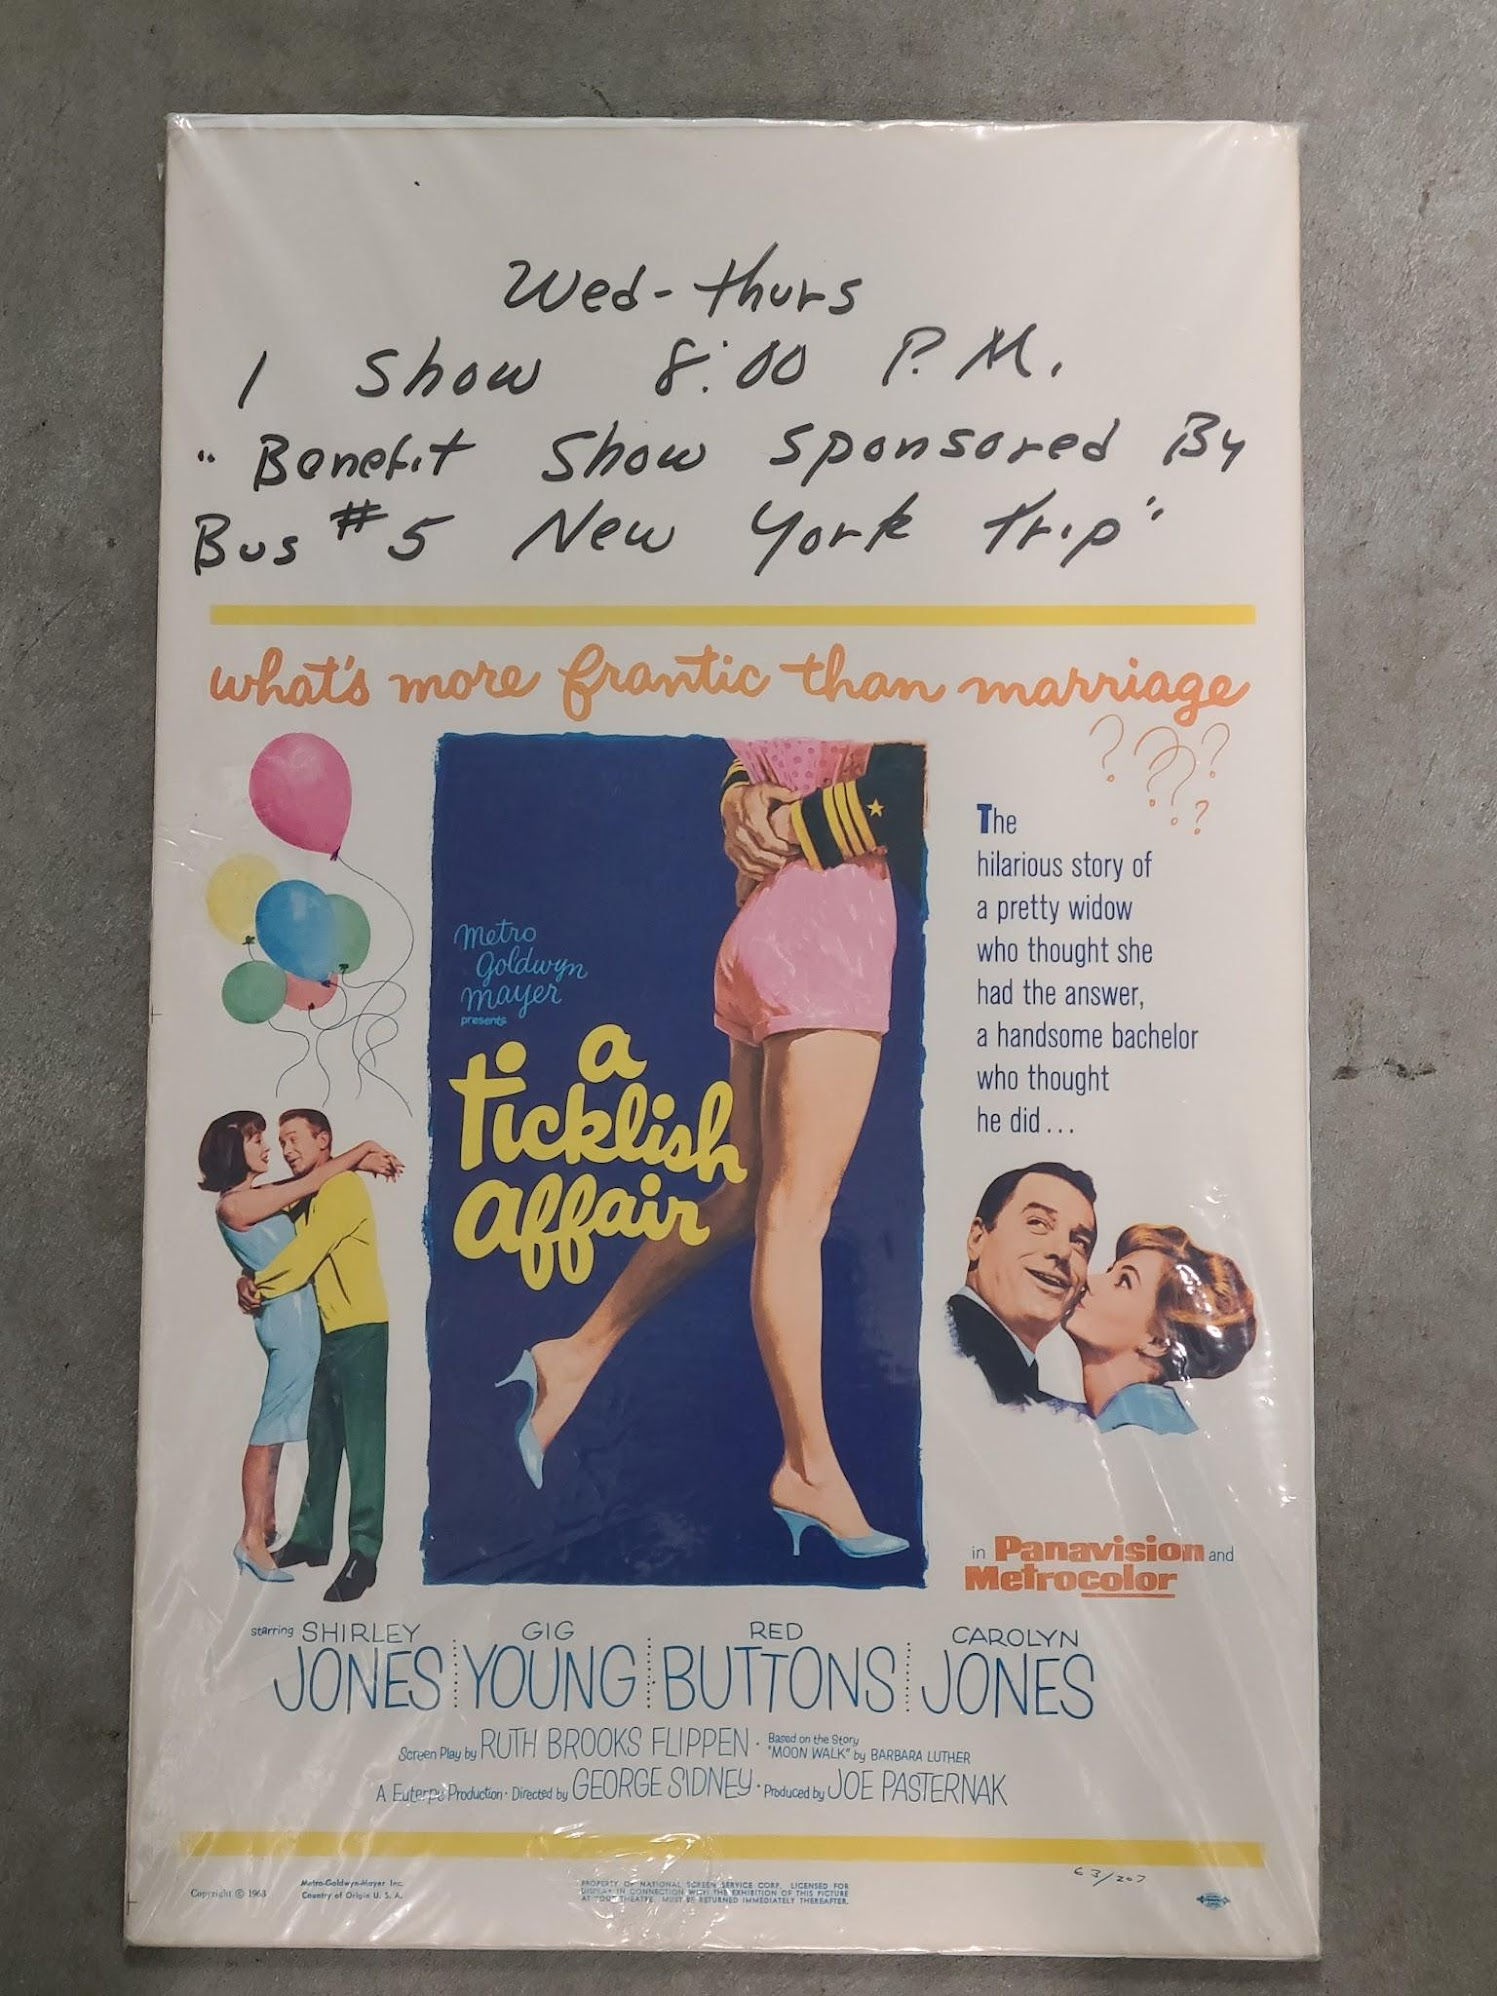 Wed-Thurs
1 Show 8:00 P.M.
"Benefit Show Sponsored By
Bus #5 New York Trip"
what's more frantic than marriage
? ? ? ? ?
The
hilarious story of
a pretty widow
who thought she
had the answer,
a handsome bachelor
who thought
he did...
Metro
Goldwyn
Mayer
presents
a
Ticklish
Affair
in Panavision and
Metrocolor
starring SHIRLEY JONES
GIG YOUNG
RED BUTTONS
CAROLYN JONES
Screen Play by RUTH BROOKS FLIPPEN · Based on the Story "MOON WALK" by BARBARA LUTHER
A Euterpe Production · Directed by GEORGE SIDNEY · Produced by JOE PASTERNAK
Copyright © 1963
Metro-Goldwyn-Mayer Inc.
Country of Origin U. S. A.
PROPERTY OF NATIONAL SCREEN SERVICE CORP. LICENSED FOR
DISPLAY IN CONNECTION WITH THE EXHIBITION OF THIS PICTURE
AT YOUR THEATRE. MUST BE RETURNED IMMEDIATELY THEREAFTER.
63/207